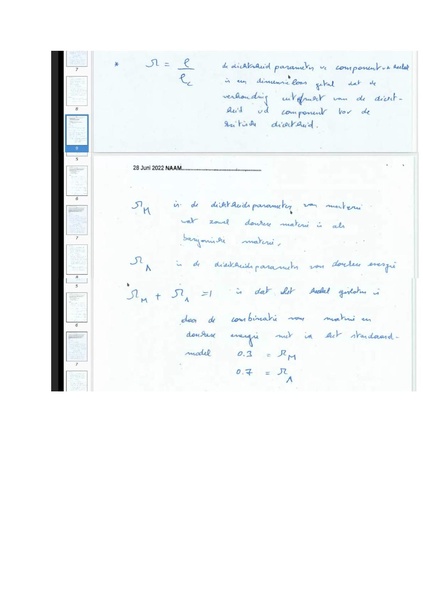 * Ω = ρ / ρc de dichtheid parameter vs component
is een dimensieloos getal dat de
verhouding uitdrukt van de dicht-
heid vd component tov de
kritische dichtheid.
28 Juni 2022 NAAM
Ω_M is de dichtheidsparameter van materie
wat zowel donkere materie is als
baryonische materie.
Ω_Λ is de dichtheidsparameter van donkere energie
Ω_M + Ω_Λ = 1 is dat het heelal gesloten is
door de combinatie van materie en
donkere energie met in het standaard-
model 0.3 = Ω_M
0.7 = Ω_Λ